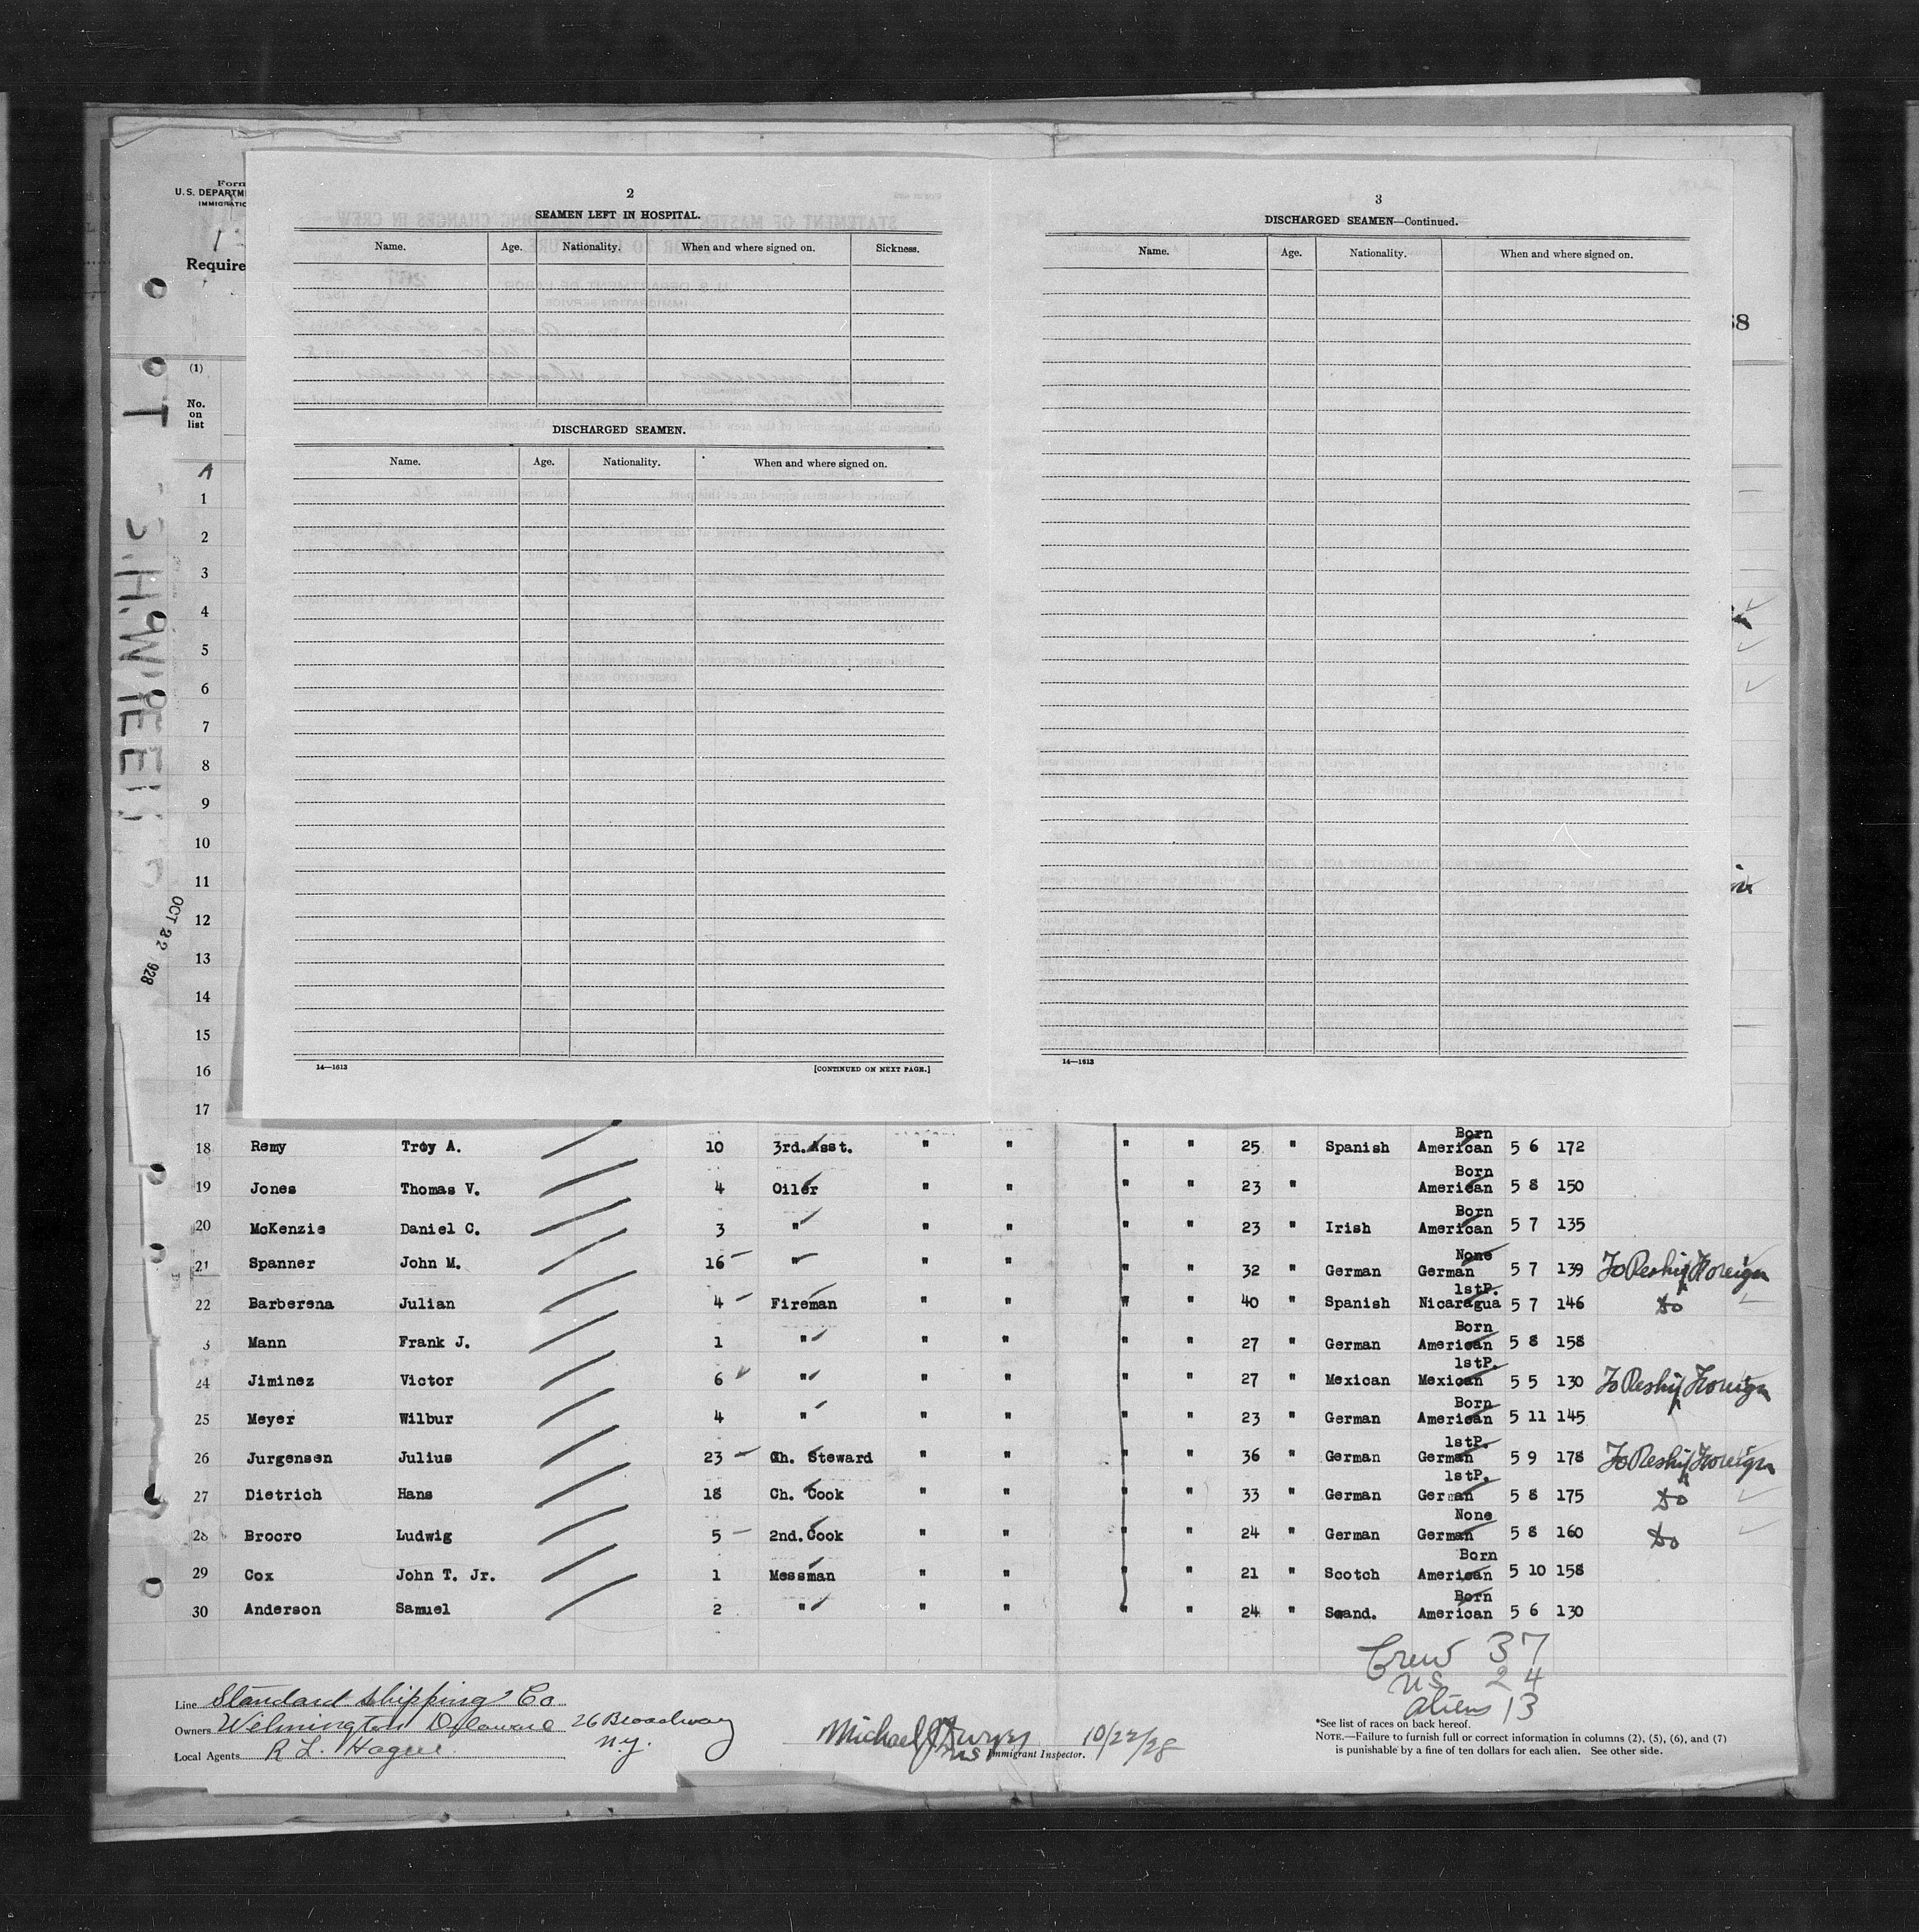 Form
U.S. DEPARTM
IMMIGRATIO
Require
(1)
No.
on
list
1
2
3
4
5
6
7
8
9
10
11
12
13
14
15
16
17
OCT 22 928
2
SEAMEN LEFT IN HOSPITAL.
Name. Age. Nationality. When and where signed on. Sickness.
DISCHARGED SEAMEN.
Name. Age. Nationality. When and where signed on.
14—1613 [CONTINUED ON NEXT PAGE.]
3
DISCHARGED SEAMEN—Continued.
Name. Age. Nationality. When and where signed on.
14—1613
68
Born
18 Remy Troy A. 10 3rd. Asst. " " " " 25 " Spanish American 5 6 172
Born
19 Jones Thomas V. 4 Oiler " " " " 23 " American 5 8 150
Born
20 McKenzie Daniel C. 3 " " " " " 23 " Irish American 5 7 135
None
21 Spanner John M. 16 " " " " " 32 " German German 5 7 139 To Reship Foreign
1stP.
22 Barberena Julian 4 Fireman " " " " 40 " Spanish Nicaragua 5 7 146 do
Born
3 Mann Frank J. 1 " " " " " 27 " German American 5 8 158
1stP.
24 Jiminez Victor 6 " " " " " 27 " Mexican Mexican 5 5 130 To Reship Foreign
Born
25 Meyer Wilbur 4 " " " " " 23 " German American 5 11 145
1stP.
26 Jurgensen Julius 23 Ch. Steward " " " " 36 " German German 5 9 178 To Reship Foreign
1stP.
27 Dietrich Hans 18 Ch. Cook " " " " 33 " German German 5 8 175 do
None
28 Brocro Ludwig 5 2nd. Cook " " " " 24 " German German 5 8 160 do
Born
29 Cox John T. Jr. 1 Messman " " " " 21 " Scotch American 5 10 158
Born
30 Anderson Samuel 2 " " " " " 24 " Scand. American 5 6 130
Crew 37
US 24
aliens 13
Line Standard Shipping Co
Owners Wilmington Delaware 26 Broadway
Local Agents R L. Hague N.Y.
Michael Immigrant Inspector. 10/22/28
*See list of races on back hereof.
NOTE.—Failure to furnish full or correct information in columns (2), (5), (6), and (7)
is punishable by a fine of ten dollars for each alien. See other side.